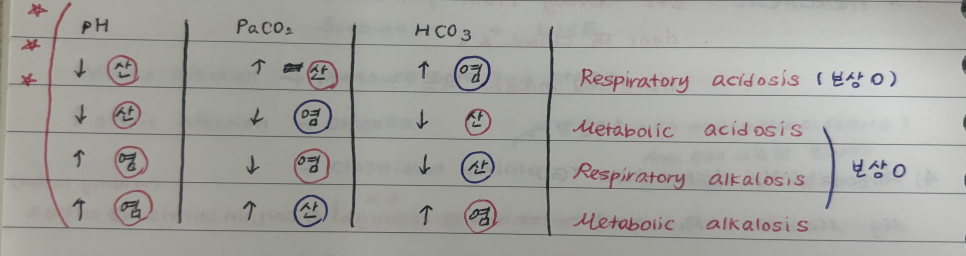 pH PaCO₂ HCO₃
↓ 산 ↑ 산 ↑ 염 Respiratory acidosis (보상 O)
↓ 산 ↓ 염 ↓ 산 Metabolic acidosis
↑ 염 ↓ 염 ↓ 산 Respiratory alkalosis 보상 O
↑ 염 ↑ 산 ↑ 염 Metabolic alkalosis